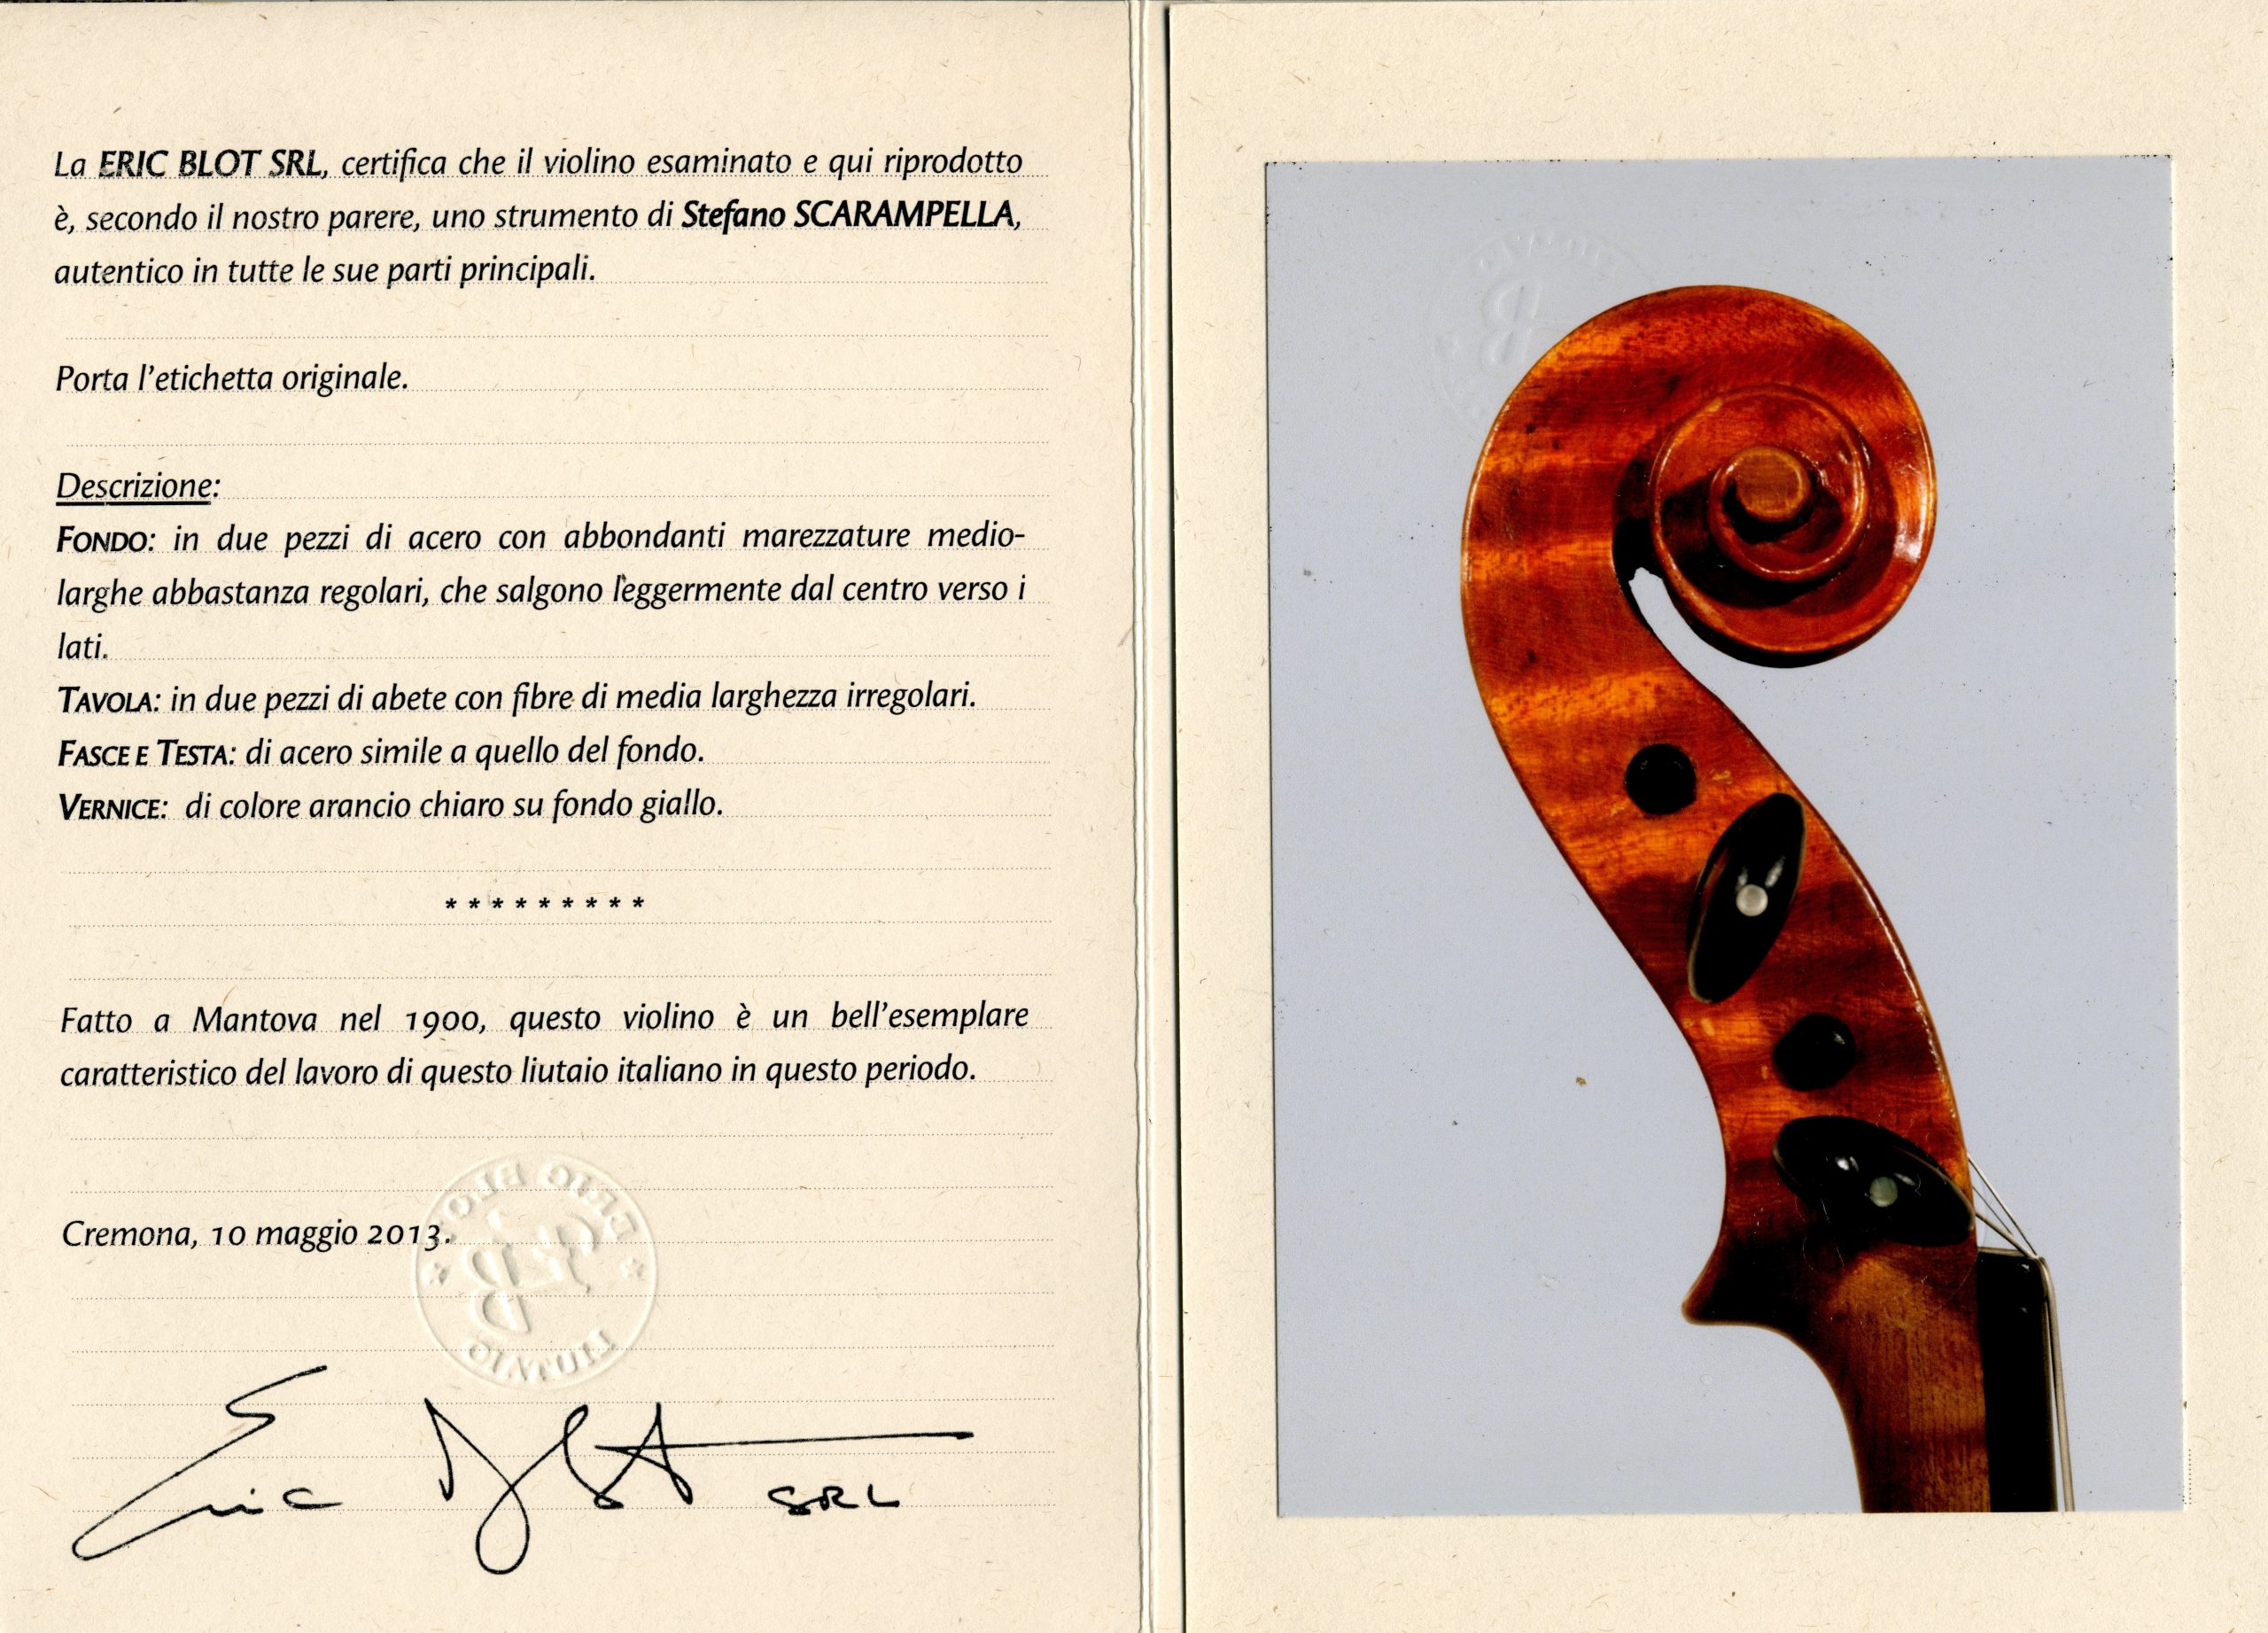 La ERIC BLOT SRL, certifica che il violino esaminato e qui riprodotto
è, secondo il nostro parere, uno strumento di Stefano SCARAMPELLA,
autentico in tutte le sue parti principali.
Porta l'etichetta originale.
Descrizione:
FONDO: in due pezzi di acero con abbondanti marezzature medio-
larghe abbastanza regolari, che salgono leggermente dal centro verso i
lati.
TAVOLA: in due pezzi di abete con fibre di media larghezza irregolari.
FASCE E TESTA: di acero simile a quello del fondo.
VERNICE: di colore arancio chiaro su fondo giallo.
* * * * * * * * *
Fatto a Mantova nel 1900, questo violino è un bell'esemplare
caratteristico del lavoro di questo liutaio italiano in questo periodo.
Cremona, 10 maggio 2013.
ERIC BLOT
LIUTAIO
Eric Blot SRL